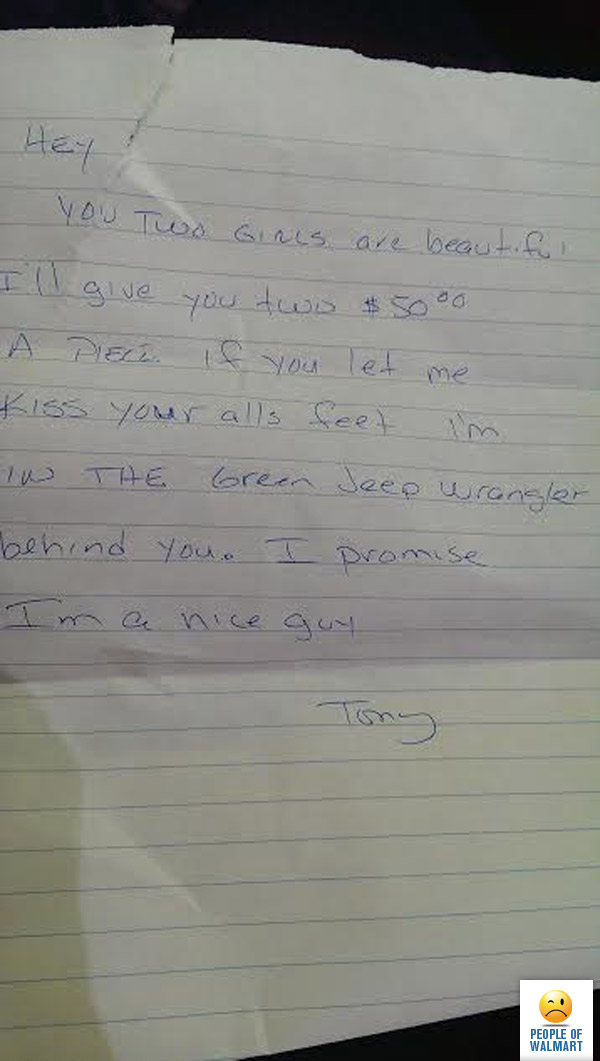 Hey
YOU TWO GIRLS are beautiful
I'll give you two $50⁰⁰
A PIECE if you let me
KISS your alls feet I'm
IN THE Green Jeep Wrangler
behind you. I promise
I'm a nice guy
Tony
PEOPLE OF
WALMART